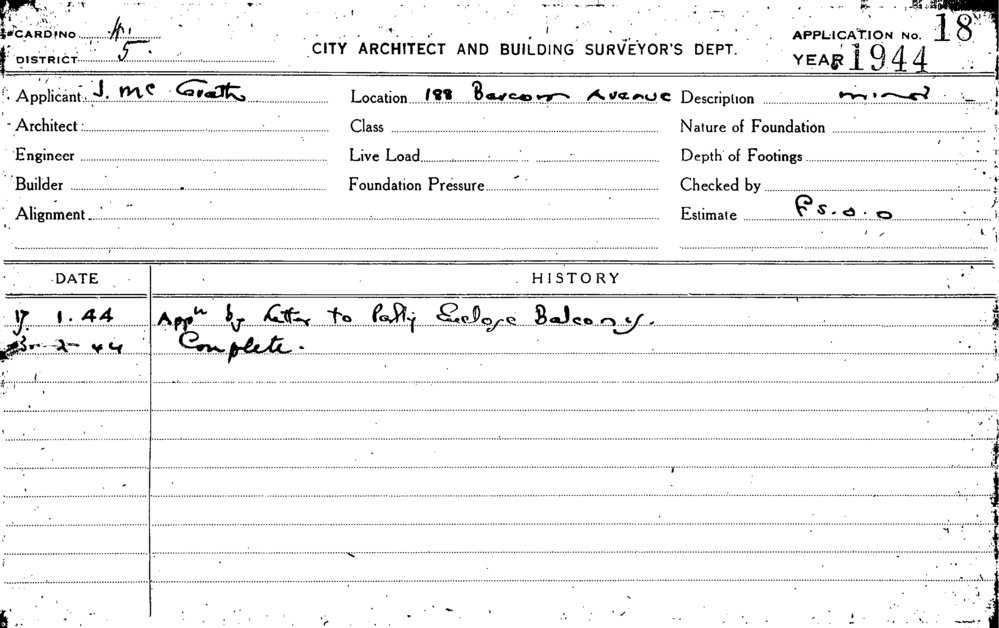 CARD NO. 1.
DISTRICT 5.
CITY ARCHITECT AND BUILDING SURVEYOR'S DEPT.
APPLICATION No. 18
YEAR 1944
Applicant J. Mc Grath Location 188 Barcom Avenue Description minor
Architect Class Nature of Foundation
Engineer Live Load Depth of Footings
Builder Foundation Pressure Checked by
Alignment Estimate £5.0.0
DATE HISTORY
17. 1. 44 Appn by Letter to Partly Enclose Balcony.
2-44 Complete.